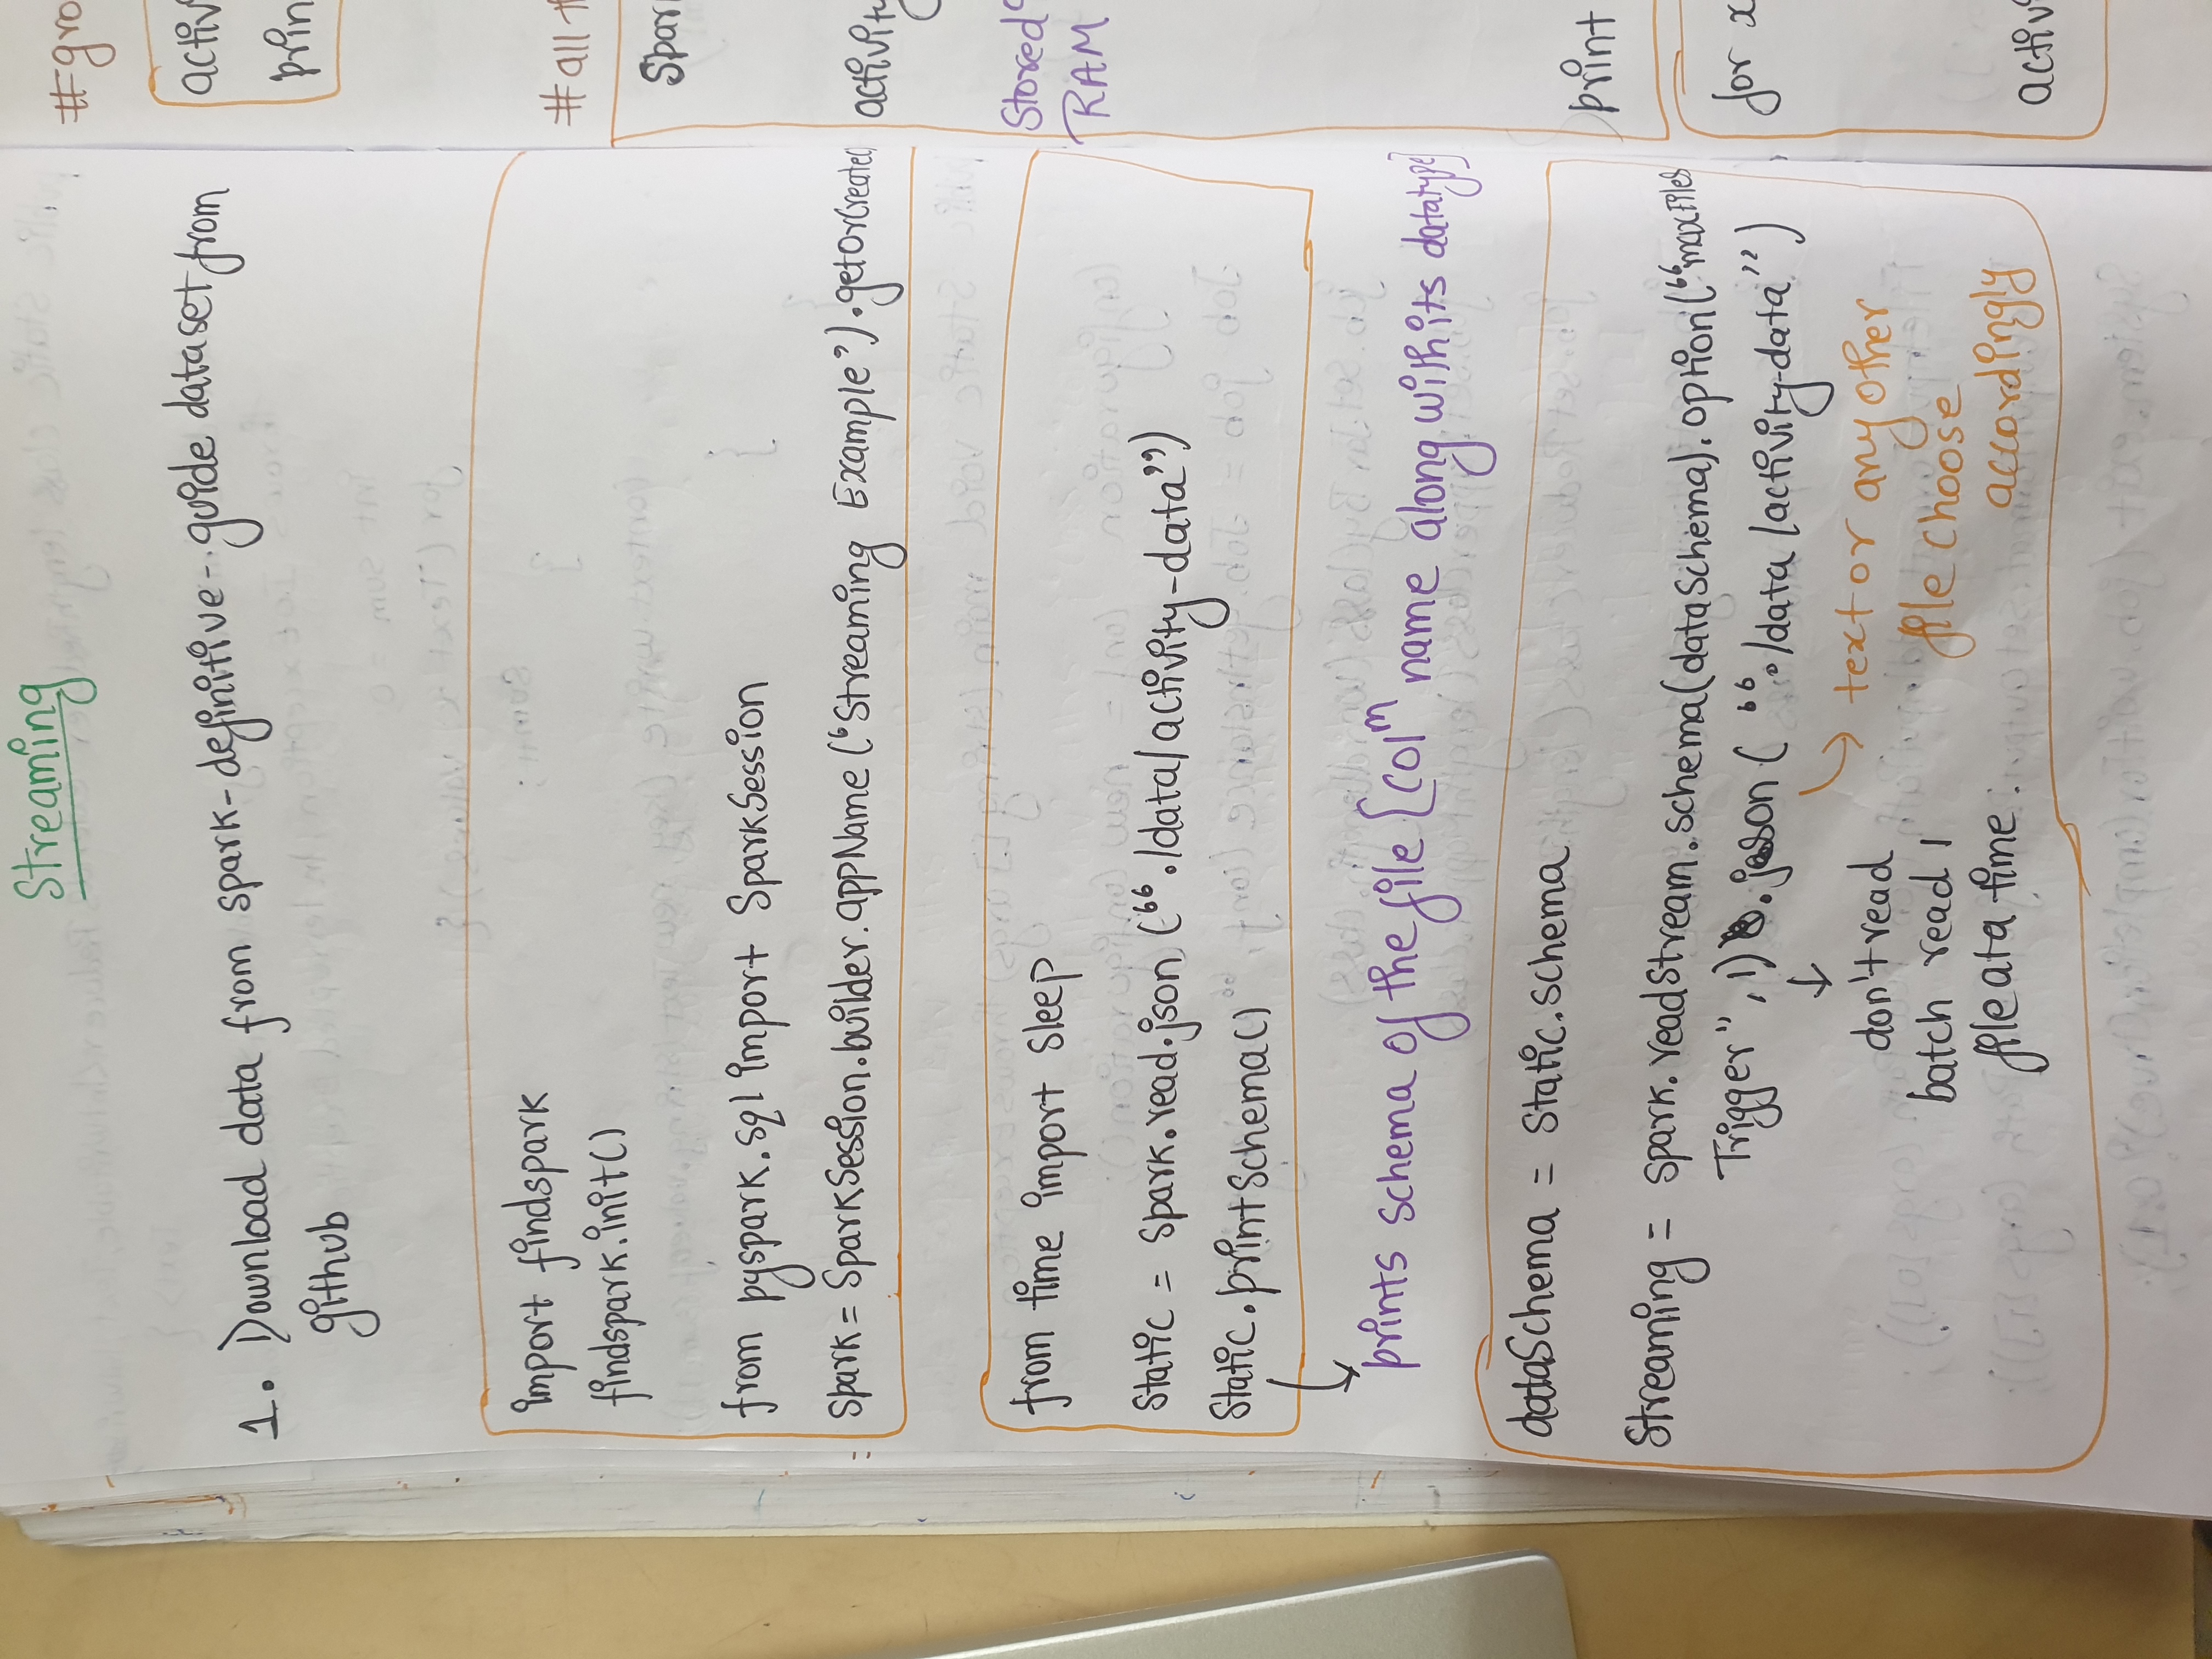 Streaming
1. Download data from spark-definitive-guide dataset from
github
import findspark
findspark.init()
from pyspark.sql import SparkSession
Spark = SparkSession.builder.appName('Streaming Example').getOrCreate(
from time import sleep
Static = Spark.read.json ("./data/activity-data")
Static.printSchema()
prints schema of the file [colm name along with its datatype]
dataSchema = Static.schema
Streaming = spark.readStream.schema(dataSchema).option("maxFiles
Trigger", 1).json ( "./data/activity-data")
don't read
batch read 1
file at a time.
text or any other
file choose
accordingly
#gro
activ
prin
#all t
Spar
activity
Stored
RAM
print
for x
activ